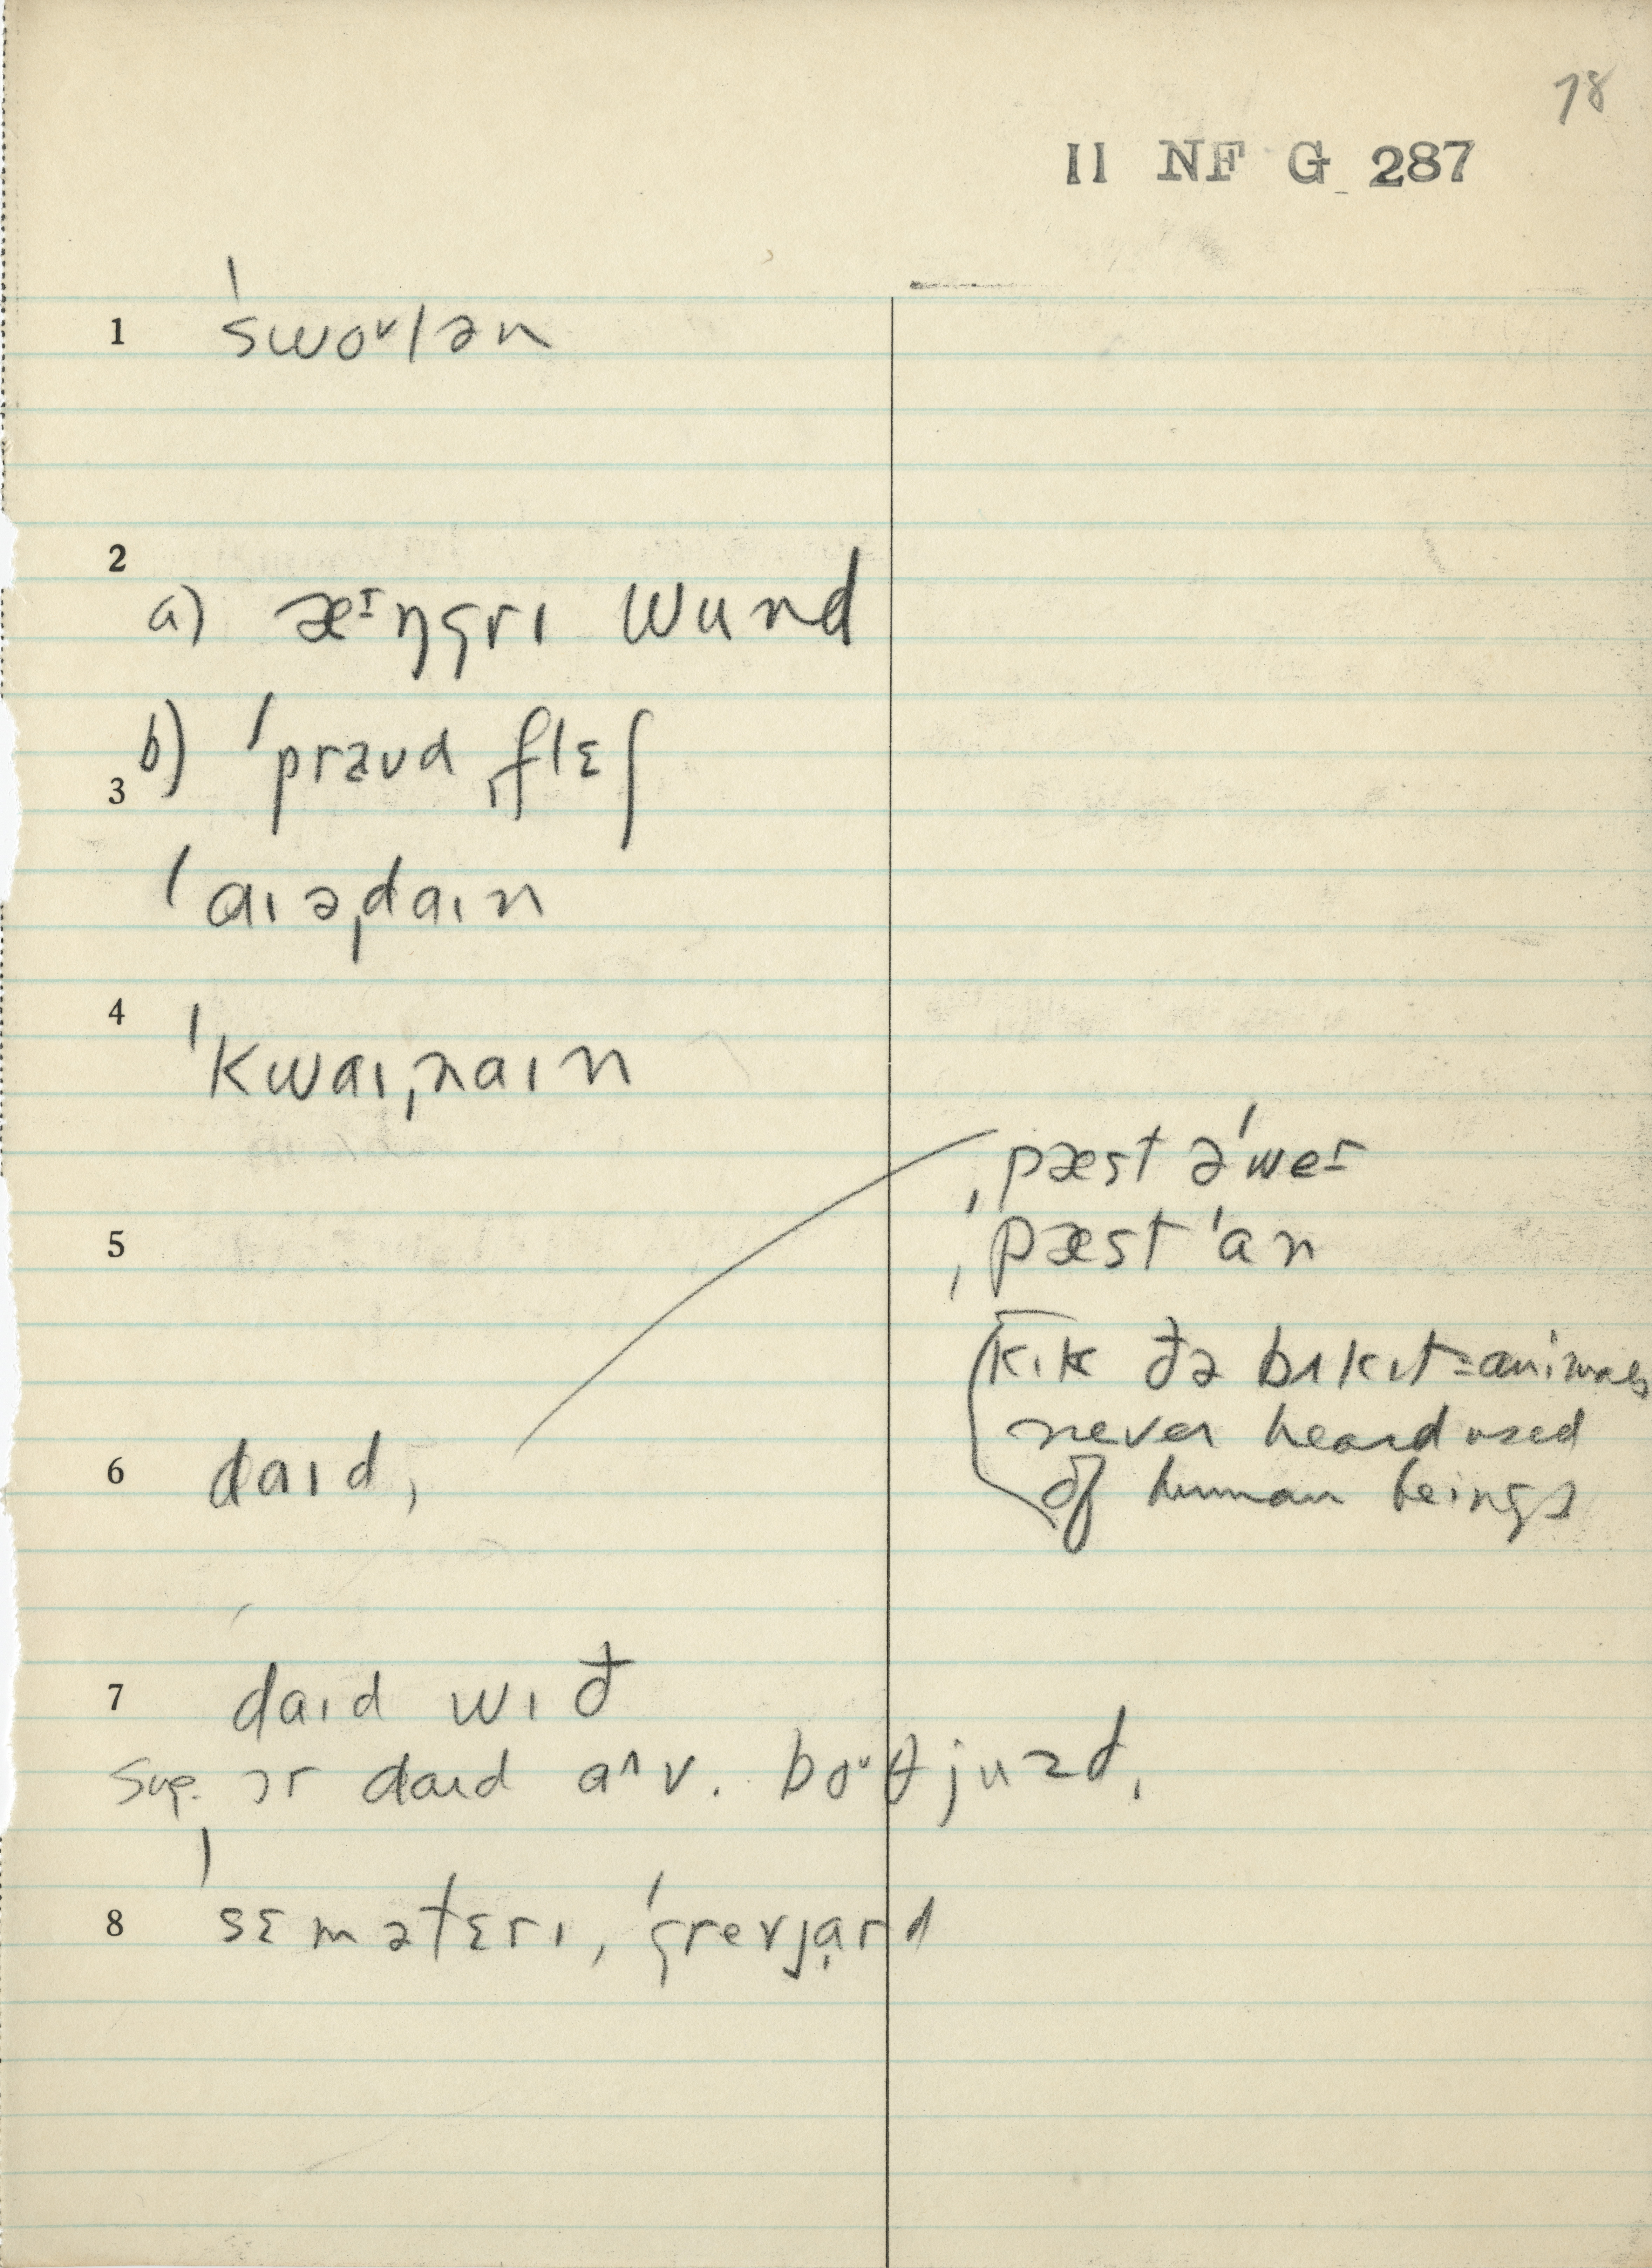 78
II NF G 287
1 ˈswoᵛlən
2
a) æᶦŋgrɪ wund
b) ˈpraud ˌflɛʃ
3
ˈaɪəˌdaɪn
4
ˈkwaɪˌnaɪn
ˌpæst əˈweᶦ
5 ˌpæst ˈan
kɪk ðə bʌkɪt = animals
never heard used
6 daɪd, of human beings
7 daɪd wɪð
Sug. ər daɪd aʌv. boᵘθ juzd.
8 ˈsɛmətɛrɪ, ˈgrevˌjard